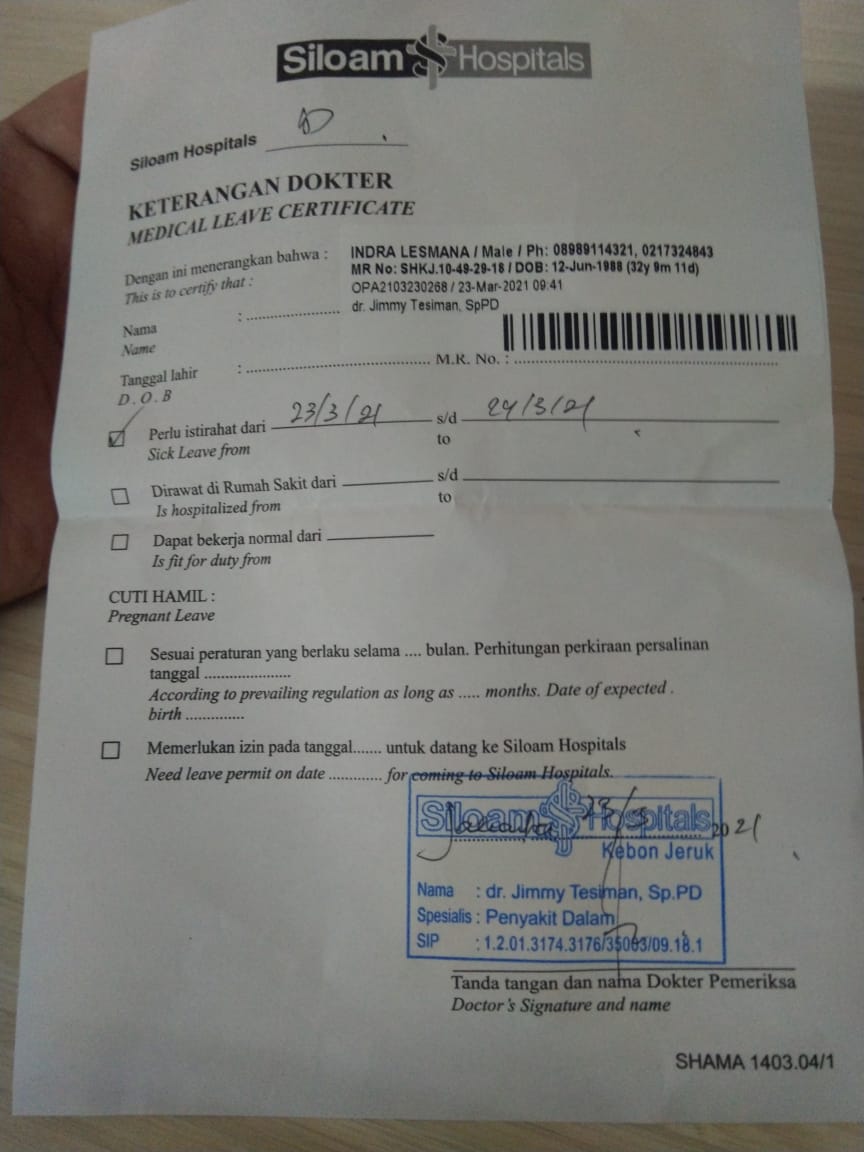 Siloam Hospitals
Siloam Hospitals
KETERANGAN DOKTER
MEDICAL LEAVE CERTIFICATE
Dengan ini menerangkan bahwa :
This is to certify that :
INDRA LESMANA / Male / Ph: 08989114321, 0217324843
MR No: SHKJ.10-49-29-18 / DOB: 12-Jun-1988 (32y 9m 11d)
OPA2103230268 / 23-Mar-2021 09:41
dr. Jimmy Tesiman, SpPD
Nama : ....................
Name
Tanggal lahir : ........................................ M.R. No. : ........................................................
D.O.B
Perlu istirahat dari 23/3/21 s/d 24/3/21
Sick Leave from to
Dirawat di Rumah Sakit dari s/d
Is hospitalized from to
Dapat bekerja normal dari
Is fit for duty from
CUTI HAMIL :
Pregnant Leave
Sesuai peraturan yang berlaku selama .... bulan. Perhitungan perkiraan persalinan
tanggal ......................
According to prevailing regulation as long as ..... months. Date of expected .
birth ..............
Memerlukan izin pada tanggal....... untuk datang ke Siloam Hospitals
Need leave permit on date ............. for coming to Siloam Hospitals.
Jakarta 23/3 2021
Siloam Hospitals
Kebon Jeruk
Nama : dr. Jimmy Tesiman, Sp.PD
Spesialis : Penyakit Dalam
SIP : 1.2.01.3174.3176/35063/09.18.1
Tanda tangan dan nama Dokter Pemeriksa
Doctor's Signature and name
SHAMA 1403.04/1